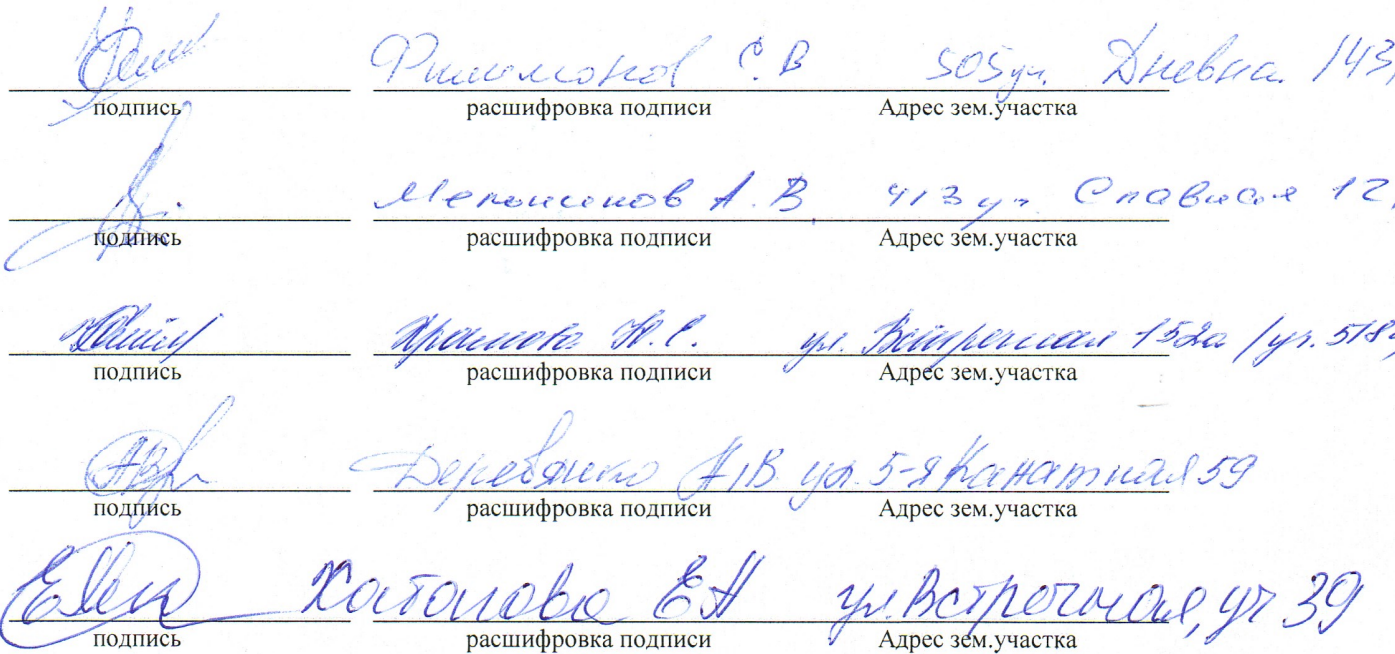 Филимонов С.В 505 уч. Дневная 143,
подпись расшифровка подписи Адрес зем.участка
Мельников А.В. 413 уч. Славная 12,
подпись расшифровка подписи Адрес зем.участка
Храмова Ю.С. ул. Встречная 152а / уч. 518,
подпись расшифровка подписи Адрес зем.участка
Деревянко А.В. ул. 5-я Канатная 59
подпись расшифровка подписи Адрес зем.участка
ЕА ул. Встречная, уч 39
подпись расшифровка подписи Адрес зем.участка